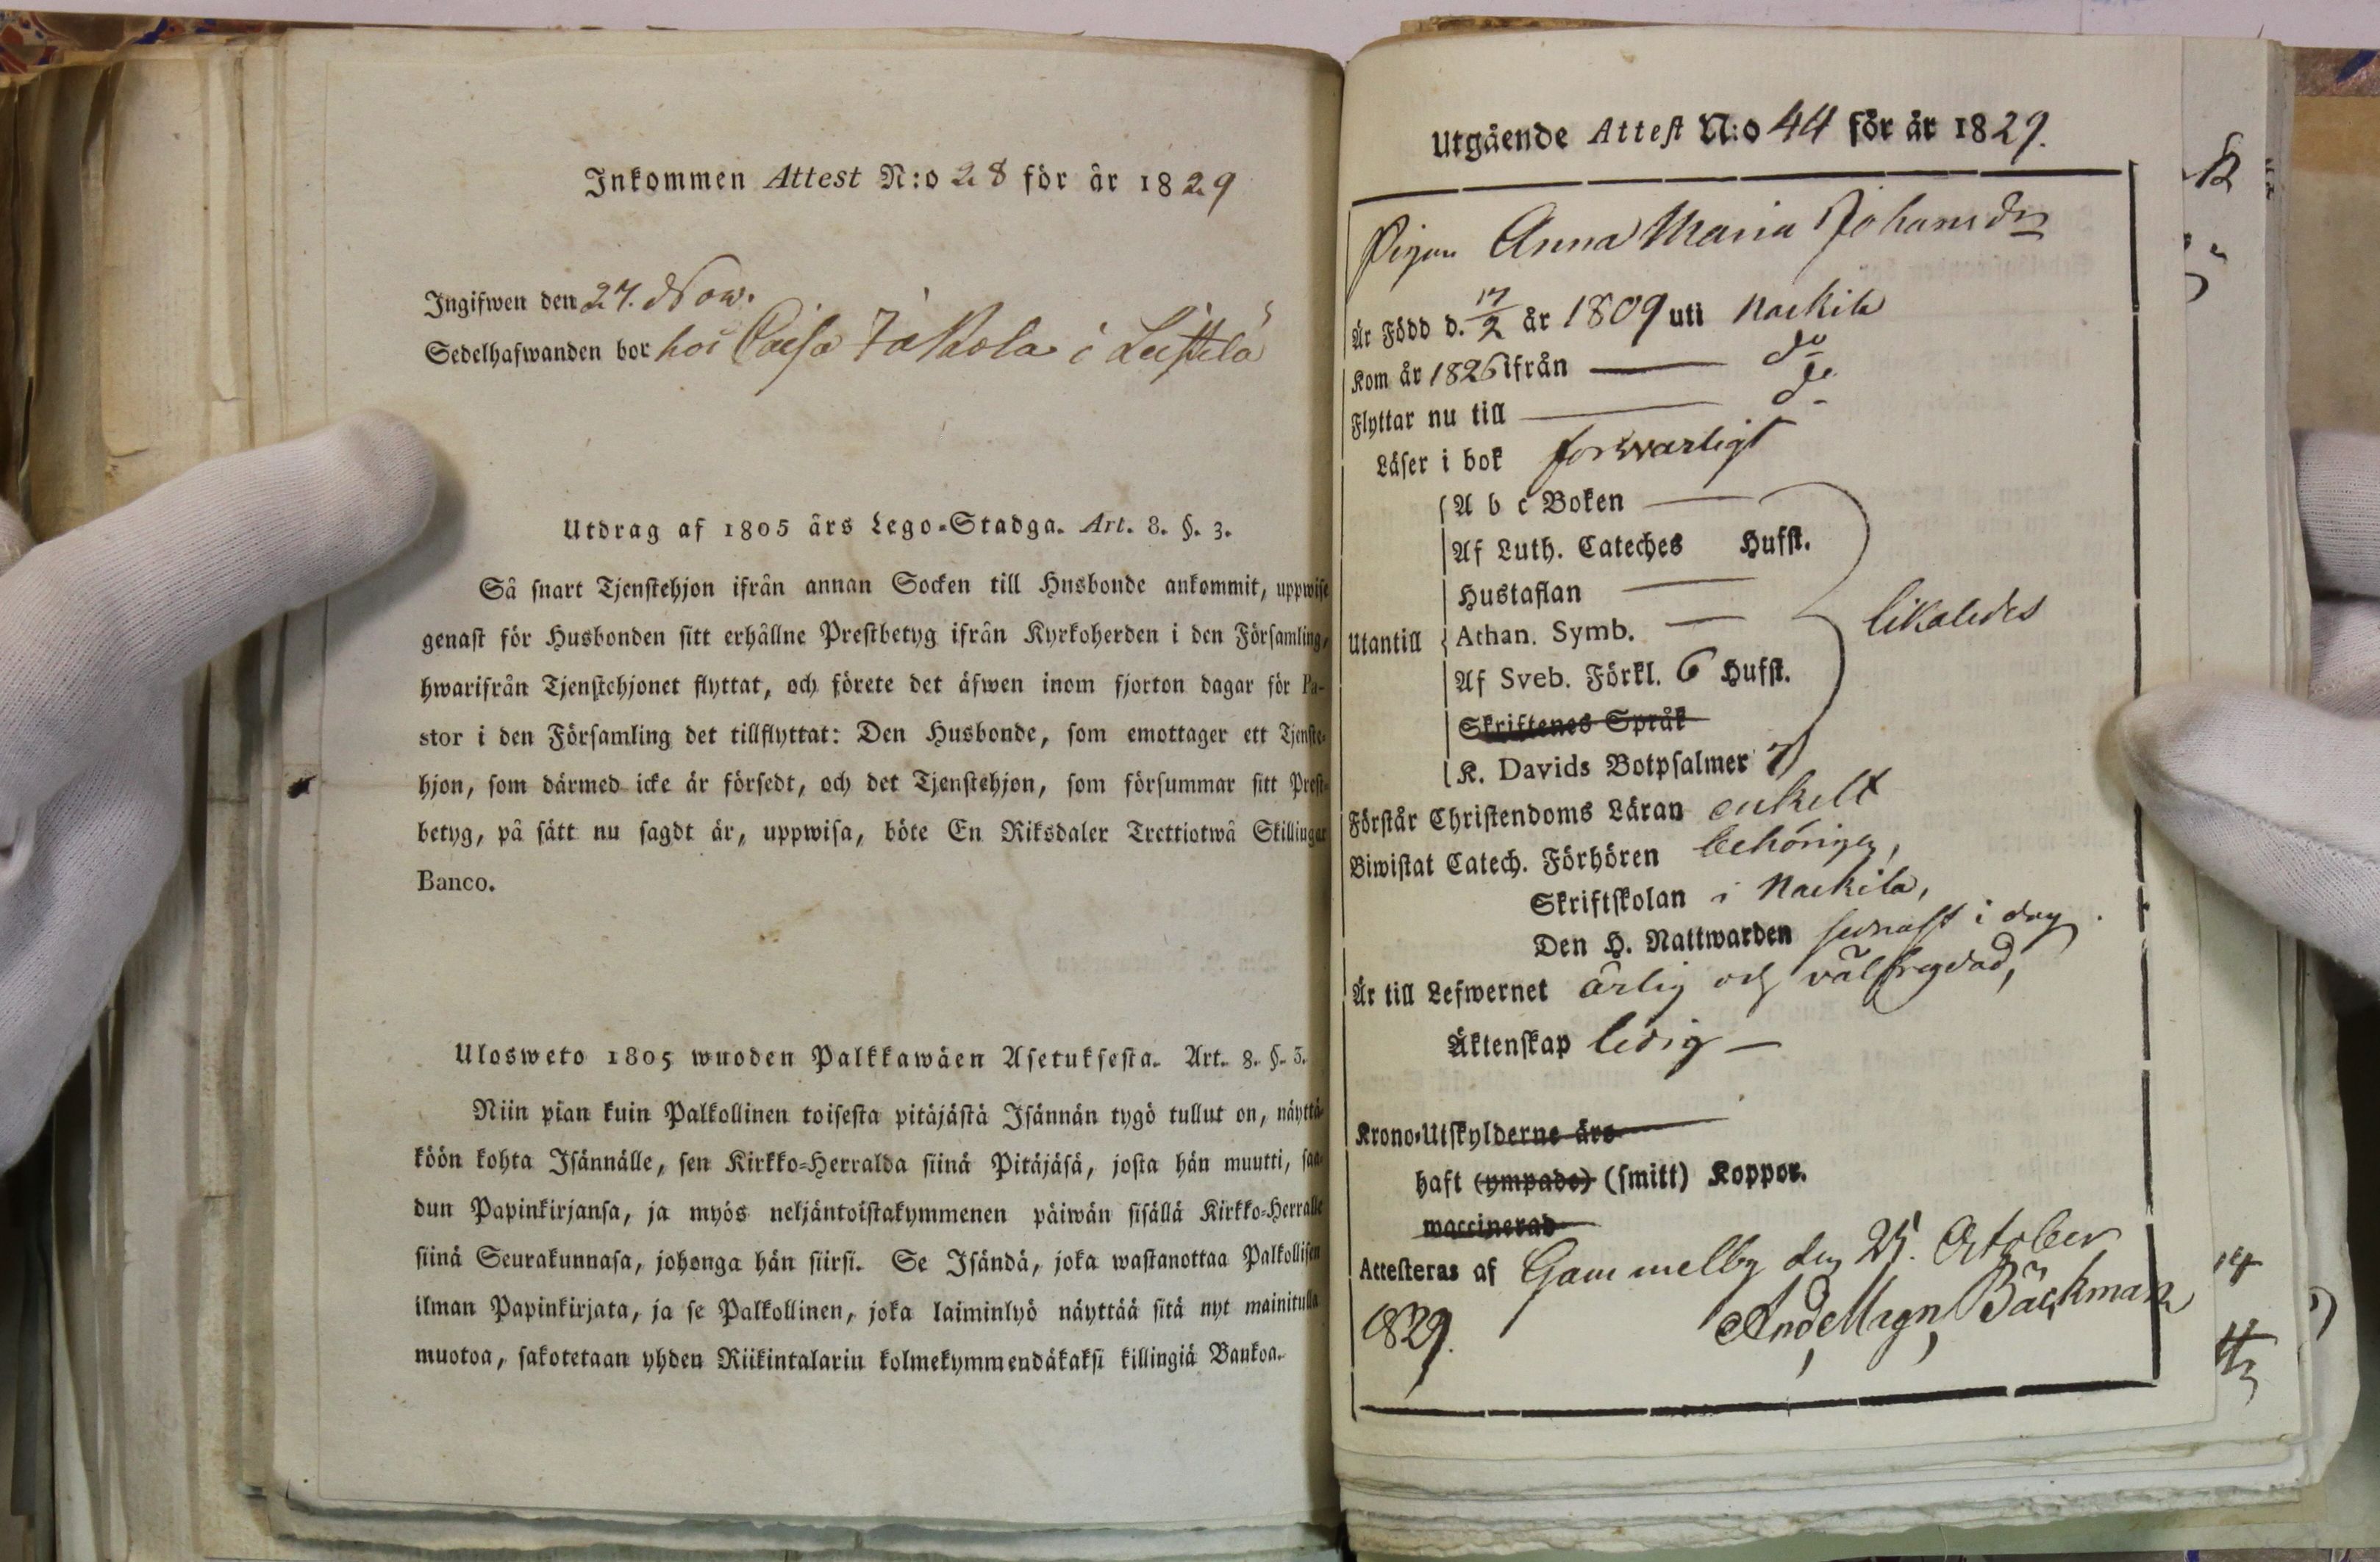 Inkommen Attest N:o 28 för år 1829
Ingifwen den 27. Now.
Sedelhafwanden bor hos Caisa Jakola i Leistelä
Utdrag af 1805 års Lego-Stadga. Art. 8. §. 3.
Så snart Tjenstehjon ifrån annan Socken till Hnsbonde ankommit, uppwise
genast för Husbonden sitt erhållne Prestbetyg ifrån Kyrkoherden i den Församling,
hwarifrån Tjenstehjonet flyttat, och förete det äfwen inom fjorton dagar för Pa-
stor i den Församling det tillflyttat: Den Husbonde, som emottager ett Tjenste-
hjon, som därmed icke är försedt, och det Tjenstehjon, som försummar sitt Prest-
betyg, på sätt nu sagdt är, uppwisa, böte En Riksdaler Trettiotwå Skillingar
Banco.
Ulosweto 1805 wuoden Palkkawäen Asetuksesta. Art. 8. §. 3.
Niin pian kuin Palkollinen toisesta pitäjästä Isännän tygö tullut on, näyttä-
köön kohta Isännälle, sen Kirkko-Herralda siinä Pitäjäsä, josta hän muutti, saa-
dun Papinkirjansa, ja myös neljäntoistakymmenen päiwän sisällä Kirkko-Herralle
siinä Seurakunnasa, johonga hän siirsi. Se Isändä, joka wastanottaa Palkollisen
ilman Papinkirjata, ja se Palkollinen, joka laiminlyö näyttää sitä nyt mainitulla
muotoa, sakotetaan yhden Riikintalarin kolmekymmendäkaksi killingiä Bankoa.
Utgående Attest N:o 44 för år 1829.
Pigan Anna Maria Johansdr
Är Född d. 17/2 år 1809 uti Nackila
Kom år 1826 ifrån do
Flyttar nu till do
Läser i bok forswarligt
A b c Boken
Af Luth. Cateches Hufst.
Hustaflan
Utantill Athan. Symb. likaledes
Af Sveb. Förkl. 6 Hufst.
Skriftenes Språk
K. Davids Botpsalmer 7
Förstår Christendoms Läran enkelt
Biwistat Catech. Förhören behörigen,
Skriftskolan i Nackila,
Den H. Nattwarden sednast i dag.
Är till Lefwernet ärlig och välfregdad,
Äktenskap ledig
Krono-Utskylderne års
haft (ympade) (smitt) Koppor.
waccinerad
Attesteras af Gammelby den 25. October
1829. And. Magn. Bäckman